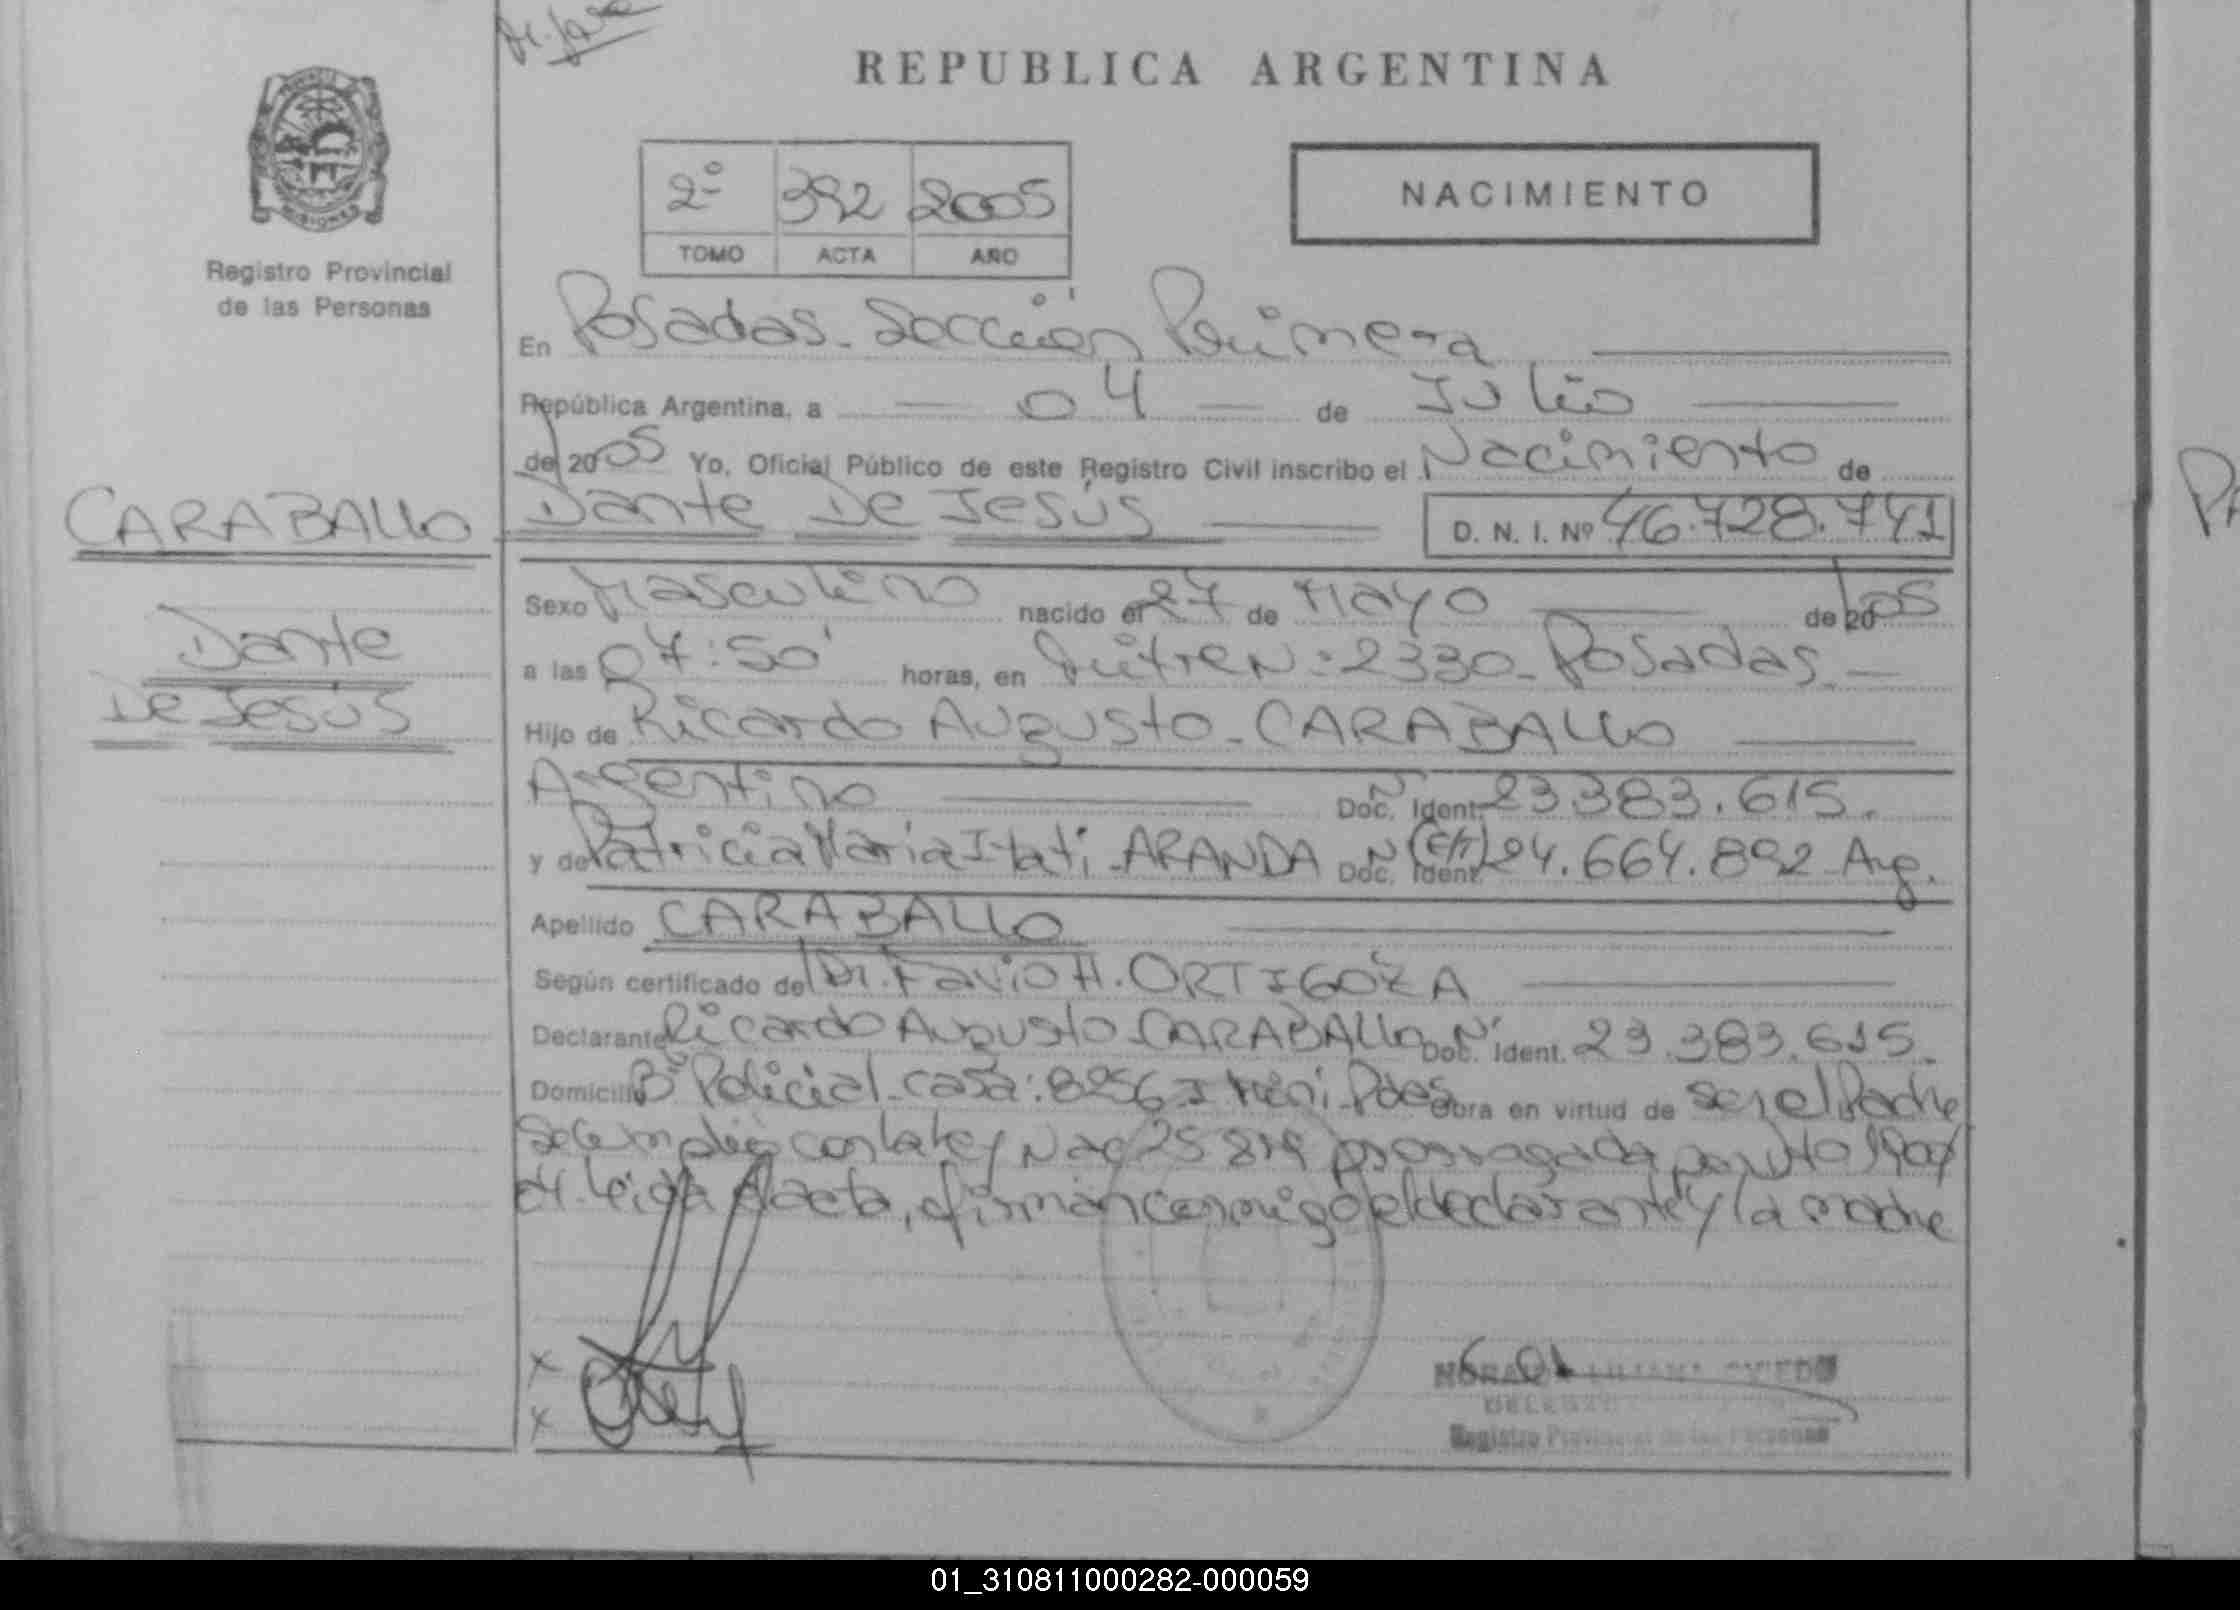 REPUBLICA ARGENTINA
MISIONES
Registro Provincial
de las Personas
2º 392 2005
TOMO ACTA AÑO
NACIMIENTO
En Posadas - Sección Primera
República Argentina, a 04 de Julio
de 2005 Yo, Oficial Público de este Registro Civil inscribo el Nacimiento de
CARABALLO Dante De Jesús D. N. I. Nº 46.728.741
Dante
De Jesús
Sexo Masculino nacido el 27 de Mayo de 2005
a las 07:50' horas, en Nº 2330 - Posadas
Hijo de Ricardo Augusto - CARABALLO
Argentino Doc. Ident. Nº 23.383.615.
y de Patricia María Itatí - ARANDA Doc. Ident. Nº 24.664.892 - Arg.
Apellido CARABALLO
Según certificado del Dr. Favio H. ORTIGOZA
Declarante Ricardo Augusto - CARABALLO Doc. Nº Ident. 23.383.615.
Domicilio Bº Policial - casa: 8256 Obra en virtud de ser el Padre
con la ley Nac 25.819 prorrogada por
Leída el acta, firman conmigo el declarante y la madre
x
x
OVIEDO
Registro Provincial de las Personas
01_310811000282-000059